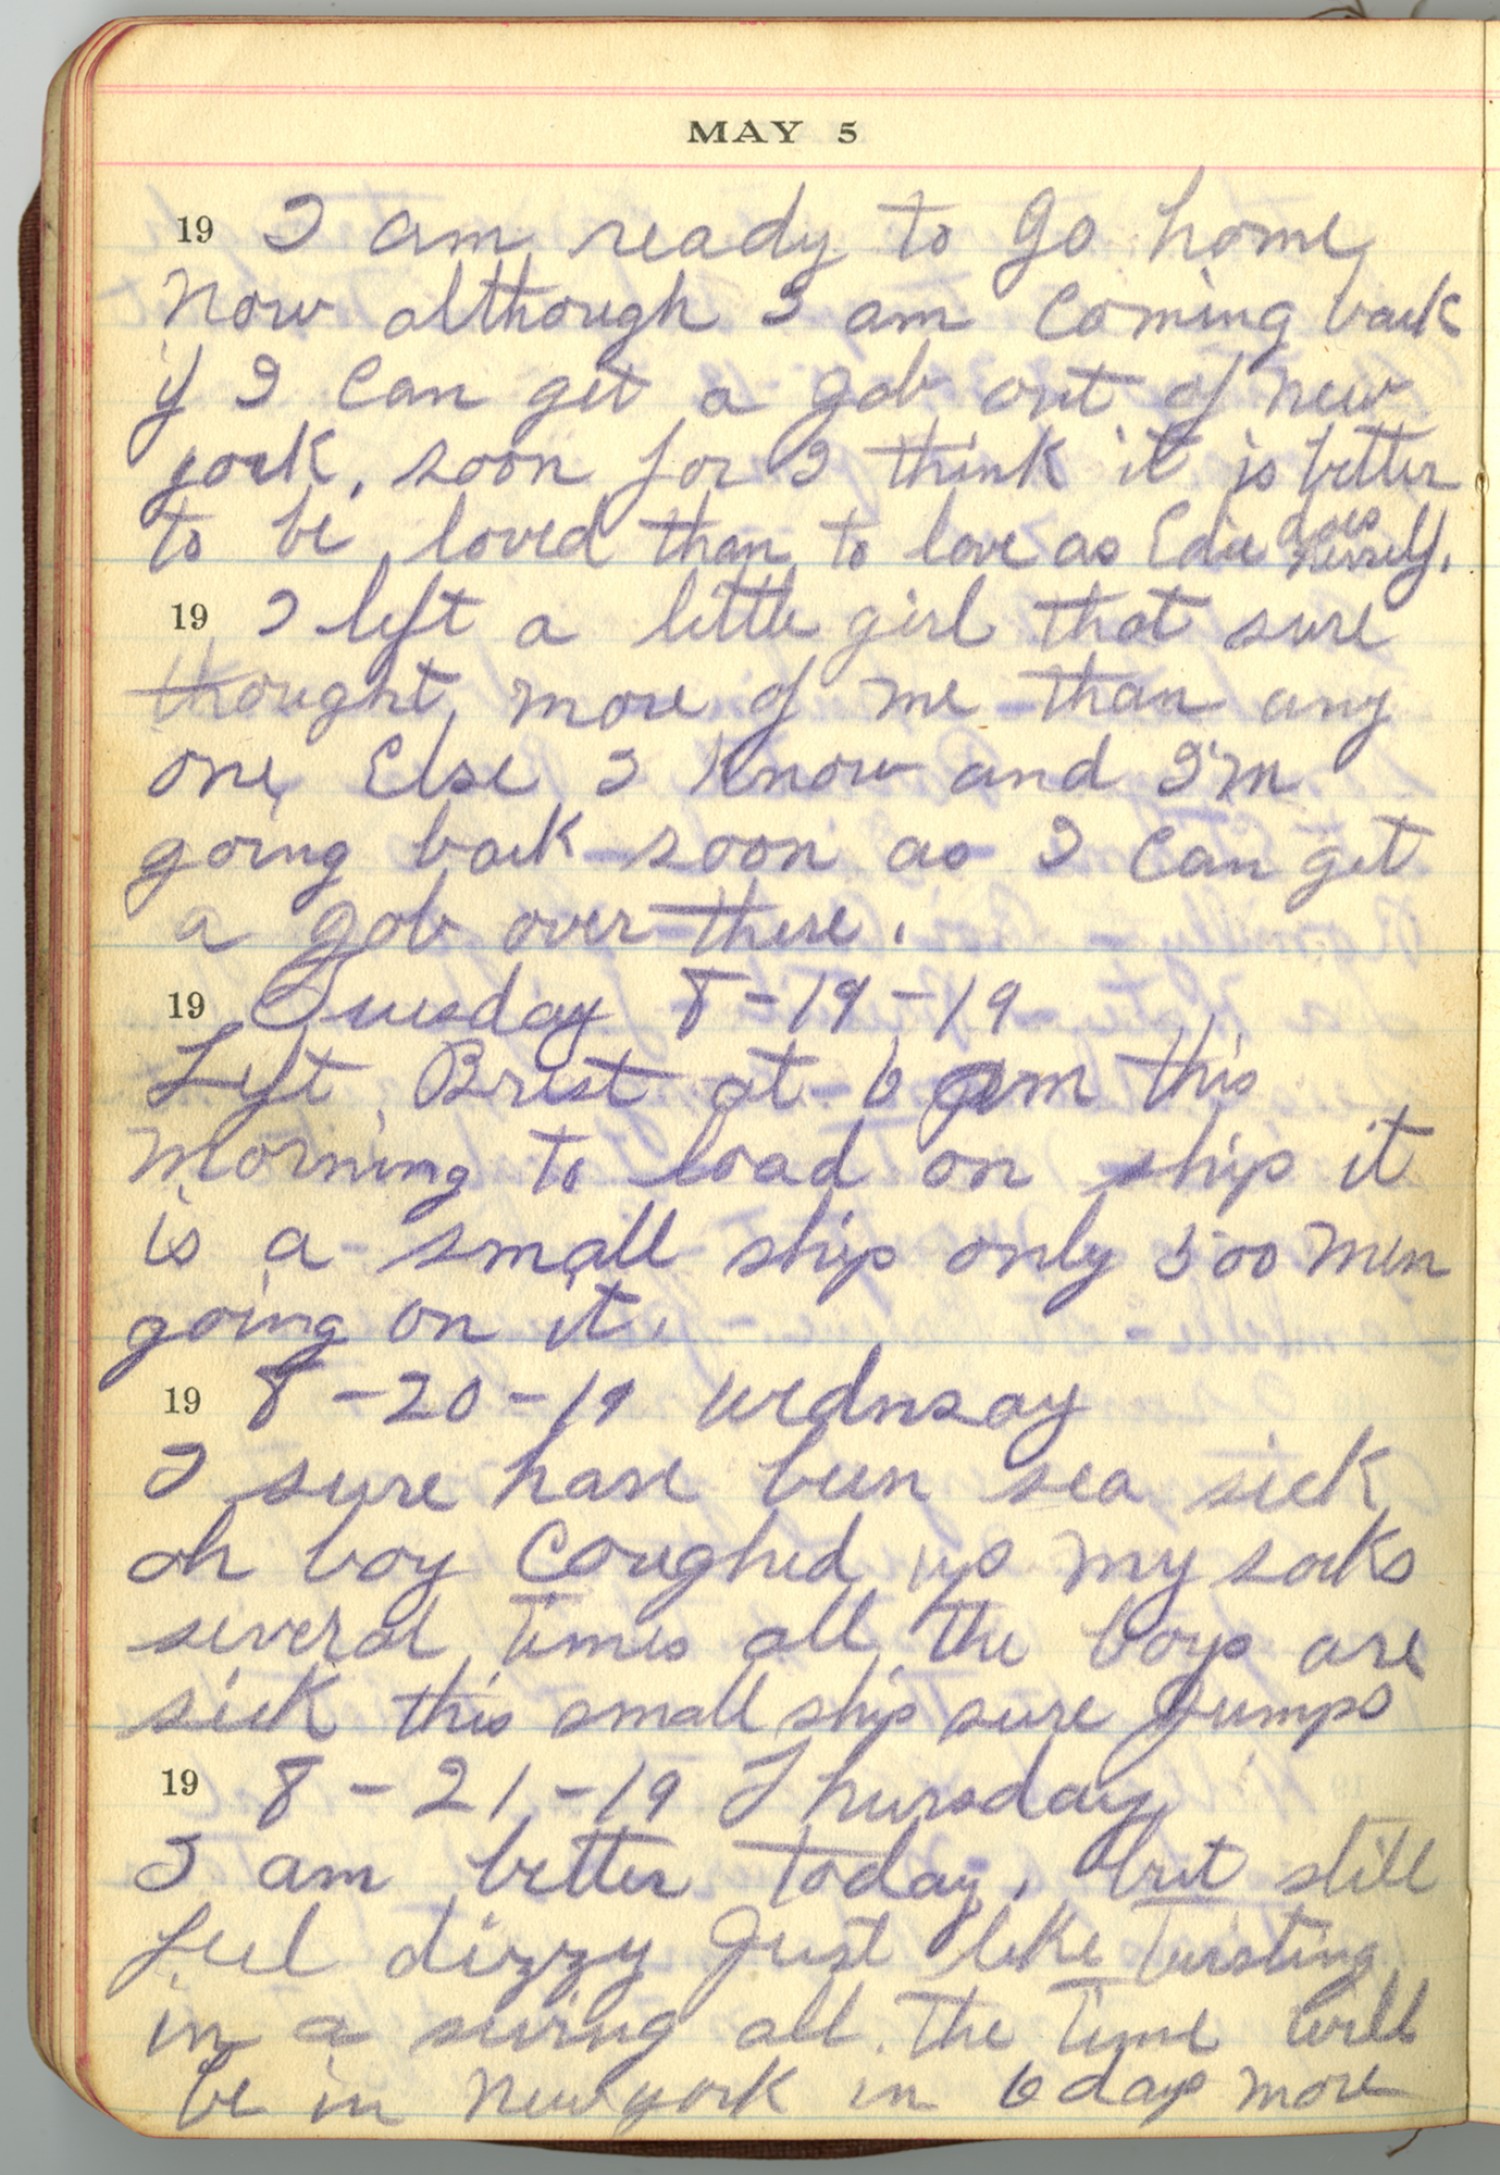 MAY 5
19 I am ready to go home
now although I am Coming back
if I Can get a gob out of new
york. soon for I think it is better
to be loved than to love as Edie does herself.
19 I left a little girl that sure
thought more of me than any
one Else I Know and I'm
going back soon as I Can get
a gob over there.
19 Tuesday 8-19-19
Left Brest at 6 am this
morning to load on ship it
is a small ship only 500 men
going on it.
19 8-20-19 wednsay
I sure have been sea sick
oh boy Coughed up my socks
several Times all the boys are
sick this small ship sure Jumps
19 8-21-19 Thursday
I am better today. but still
feel dizzy Just like Twisting
in a swing all the Time Will
be in New york in 6 days more